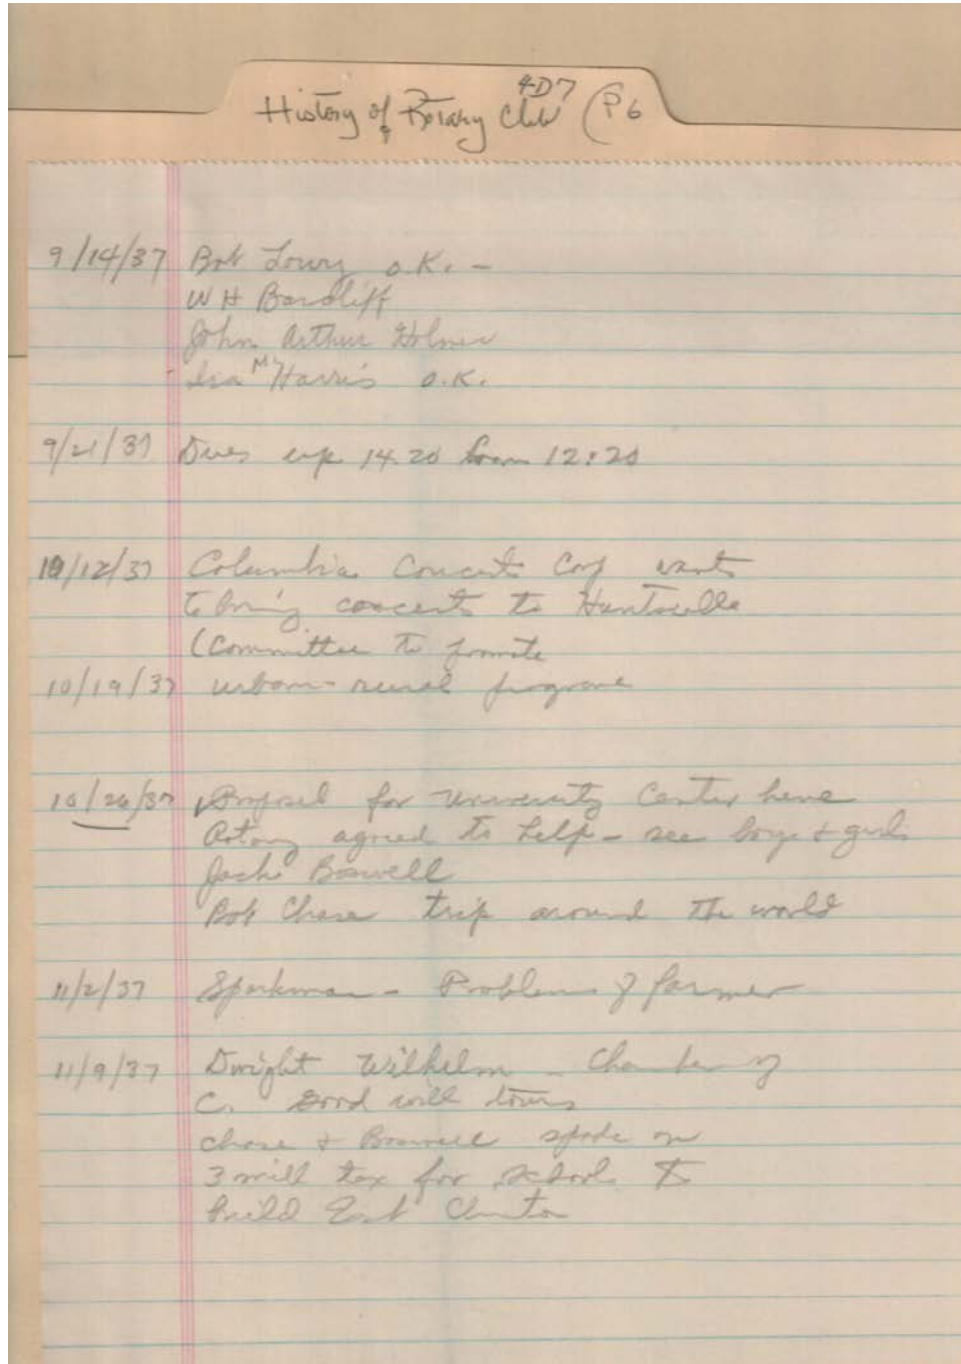 4D7
History of Rotary Club (P6
9/14/37 Bob Lowry O.K. -
W H Bardliff
John Arthur Holmes
Ira M Harris O.K.
9/21/37 Dues up 14.20 from 12:20
10/12/37 Columbia Concerts Corp wants
to bring concerts to Huntsville
(Committee to promote
10/19/37 urban-rural program
10/26/37 Proposal for University Center here
Rotary agreed to help - see boys & girls
Jack Boswell
Bob Chase trip around the world
11/2/37 Sparkman - Problems of farmer
11/9/37 Dwight Wilhelm - Chamber of
C. good will tours
Chase & Boswell spoke on
3 mill tax for schools to
build East Clinton